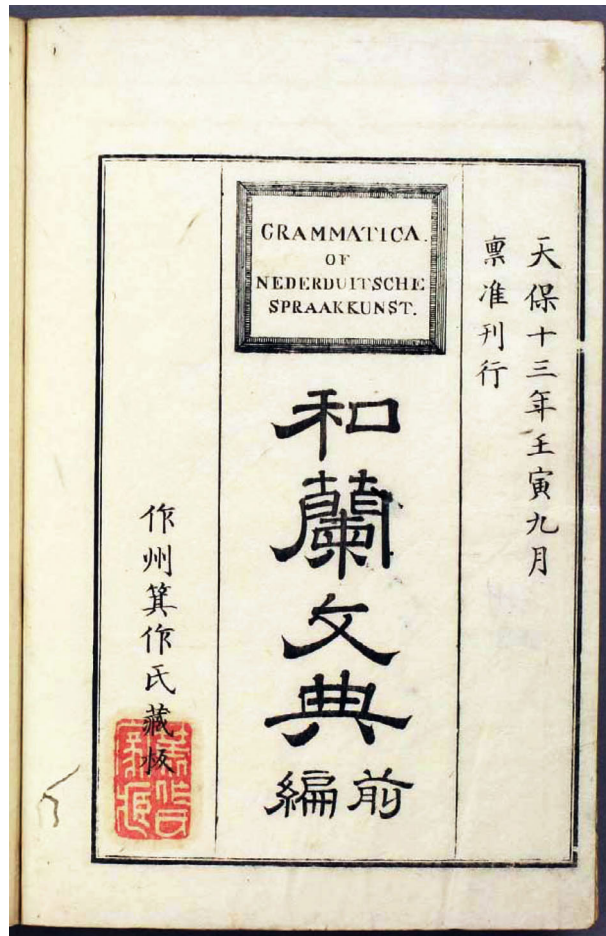 天保十三年壬寅九月
禀准刊行
GRAMMATICA.
OF
NEDERDUITSCHE
SPRAAKKUNST.
和蘭文典
前編
作州箕作氏藏板